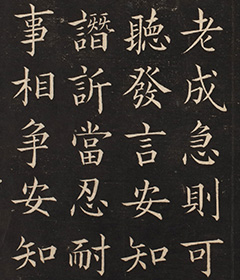 老成急則可
聽發言安知
譖訴當忍耐
事相争安知